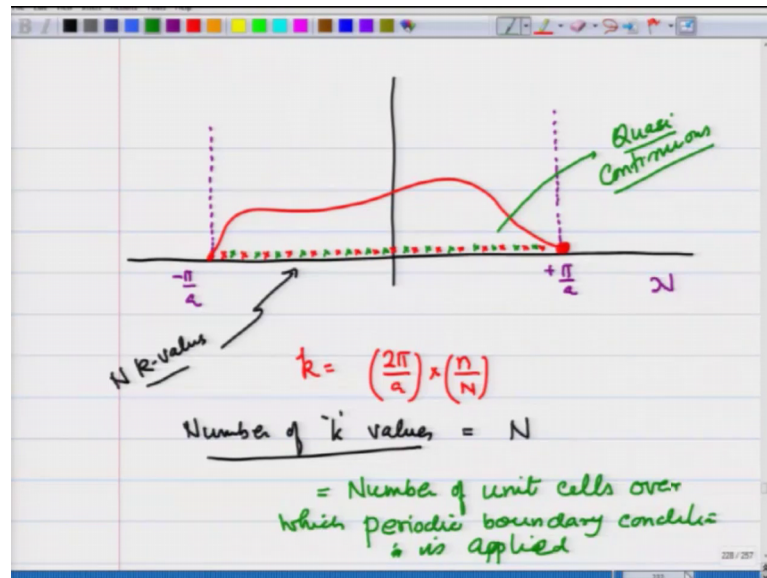 Quasi
Continuous
-π/a
+π/a
N
N k-values
k = (2π/a) × (n/N)
Number of 'k' values = N
= Number of unit cells over
which periodic boundary condition
is applied
228 / 257